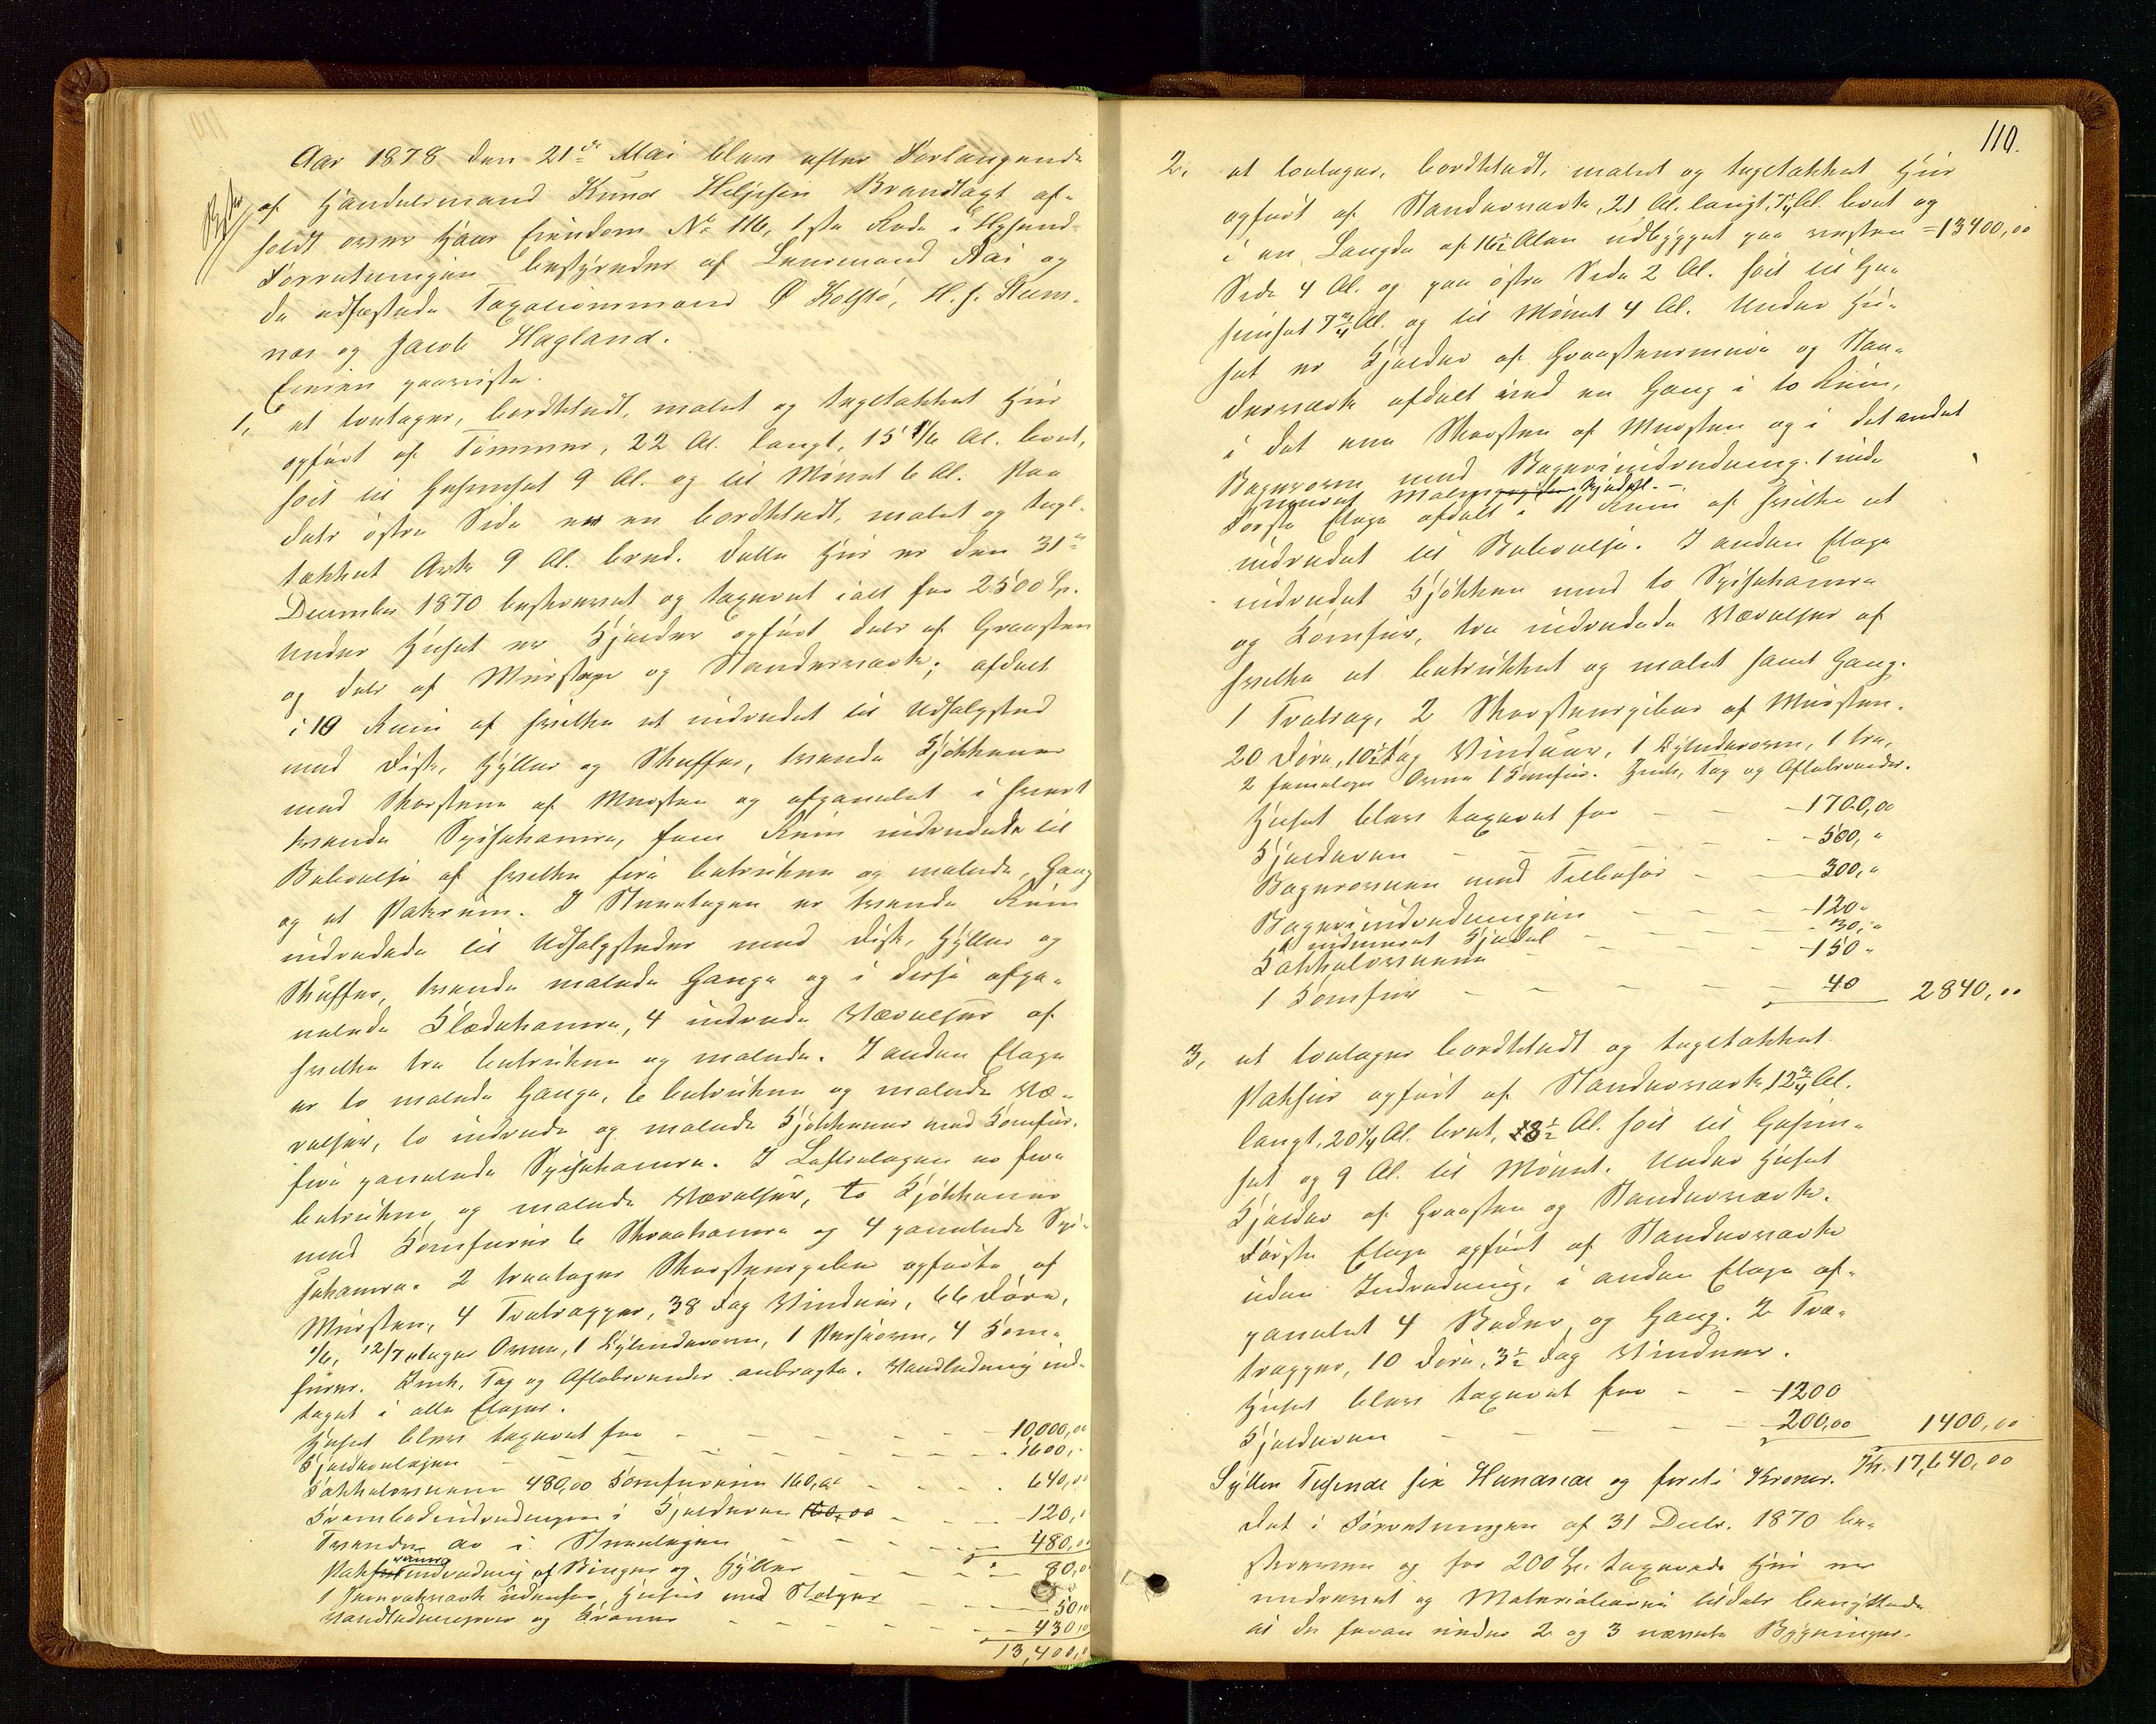 Aar 1878 den 21de Mai blev efter Forlangende
af Handelsmand Knud Heljesen Brandtaxt af-
holdt over hans Eiendom No 116, 1ste Rode i
Forretningen bestyredes af Lensmand Aai og
de udsæstede Taxationsmænd O Kolstø, H. J.
og Jacob Hagland.
Eieren paaviste.
1, et toetages, bordklædt, malet og tegltækket Huus
opført af Tømmer, 22 Al. langt, 15 1/6 Al. bret,
høit til Gesimset 9 Al. og til Mønet 6 Al. Paa
dets østre Side er en bordklædt, malet og tegl-
tækket Ark 9 Al. bred. Dette Huus er den 31te
December 1870 beskrevet og taxeret ialt for 2500 Sp.
Under Huset er Kjælder opført dels af Graasten
og dels af Mursten og Standerværk; afdelt
i 10 Rum af hvilke et indredet til Udsalgsted
med Disk, Hyller og Skuffer, tvende Kjøkkener
med Skorstene af Mursten og afpanelet i hvert
tvende Spisekamre, fem Rum indredede til
Beboelse af hvilke fire betrukne og malede, Gang
og et Pakrum. I Stueetagen er tvende Rum
indredede til Udsalgsteder med Disk, Hyller og
Skuffer, tvende malede Gange og i disse afpa-
nelede Klædekamre, 4 indrede Værelser af
hvilke tre betrukne og malede. I anden Etage
er to malede Gange, 6 betrukne og malede Væ-
relser, to indrede og malede Kjøkkener med Komfur,
fire panelede Spisekamre. I Loftsetagen er fire
betrukne og malede Værelser, to Kjøkkener
med Komfurer 6 Skraakamre og 4 panelede Spi-
sekamre. 2 treetages Skorstenspiber opførte af
Mursten, 4 Trætrapper, 38 Fag Vinduer, 66 Døre,
1/6, 12/7 etages Ovne, 1 Cylinderovn, 1 4 Kom-
furer. Tag og Afløbsrender anbragte. Vandledning ind-
taget i alle Etager.
Huset blev taxeret for - - - 10,000,00
Kjælderetagen - - - 1600,-
Kakkelovnene 480,00 Komfurerne 160,00 - - - 640,00
Krambodindredningen i Kjælderen 160,00 - - - 120,"
Tvende do i Stueetagen - - - 480,00
indredning af Binger og Hylder - - - 80,00
1 udenfor Huset med Stolper - - - 50,00
Vandledningsrør og Kraner - - - 430,00
13,400,00
110.
2, et toetages, bordklædt, malet og tegltækket Huus
opført af Standerværk, 21 Al. langt, Al. bret og
i en Længde af 16½ Alen udbygget paa vestre = 13400,00
Side 4 Al. og paa østre Side 2 Al. høit til Ge-
simset 7¾ Al. og til Mønet 4 Al. Under Hu-
set er Kjælder af Graastensmure og Stan-
derværk afdelt ved en Gang i to Rum,
i det ene Skorsten af Mursten og i det andet
Bagerovn med Bagerindredning. 1 inde
muret Kjedel. -
Første Etage afdelt i 11 Rum af hvilke et
indredet til Beboelse. I anden Etage
indredet Kjøkken med to Spisekamre
og Komfur, tre indredede Værelser af
hvilke et betrukket og malet samt Gang.
1 Trætrap, 2 Skorstenspiber af Mursten.
20 Døre, 10½ Fag Vinduer, 1 Cylinderovn, 1 tre,
2 femetages Ovne 1 Komfur. Tag og Afløbsrender.
Huset blev taxeret for - - - 1700,00
Kjælderen - - - 500,"
Bagerovnen med Tilbehør - - - 300,"
Bagerindredningen - - - 120"
1 indmuret Kjedel - - - 30,"
Kakkelovnene - - - 150"
1 Komfur - - - 40 2840,00
3, et toetages bordklædt og tegltækket
Pakhus opført af Standerværk, 12¾ Al.
langt, 20¼ Al. bret, 8½ Al. høit til Gesim-
set og 9 Al. til Mønet. Under Huset
Kjælder af Graasten og Standerværk.
Første Etage opført af Standerværk
uden Indredning, i anden Etage af-
panelet 4 Boder og Gang. 2 Træ-
trapper, 10 Døre, 3½ Fag Vinduer.
Huset blev taxeret for - - 1200
Kjælderen - - - 200,00 1400,00
Sytten Tusende sex Hundrede og fyrreti Kroner. Kr. 17,640,00
Det i Forretningen af 31 Decbr. 1870 be-
skrevne og for 200 Sp. taxerede Huus er
nedrevet og Materialierne tildels benyttede
til de foran under 2 og 3 nævnte Bygninger.